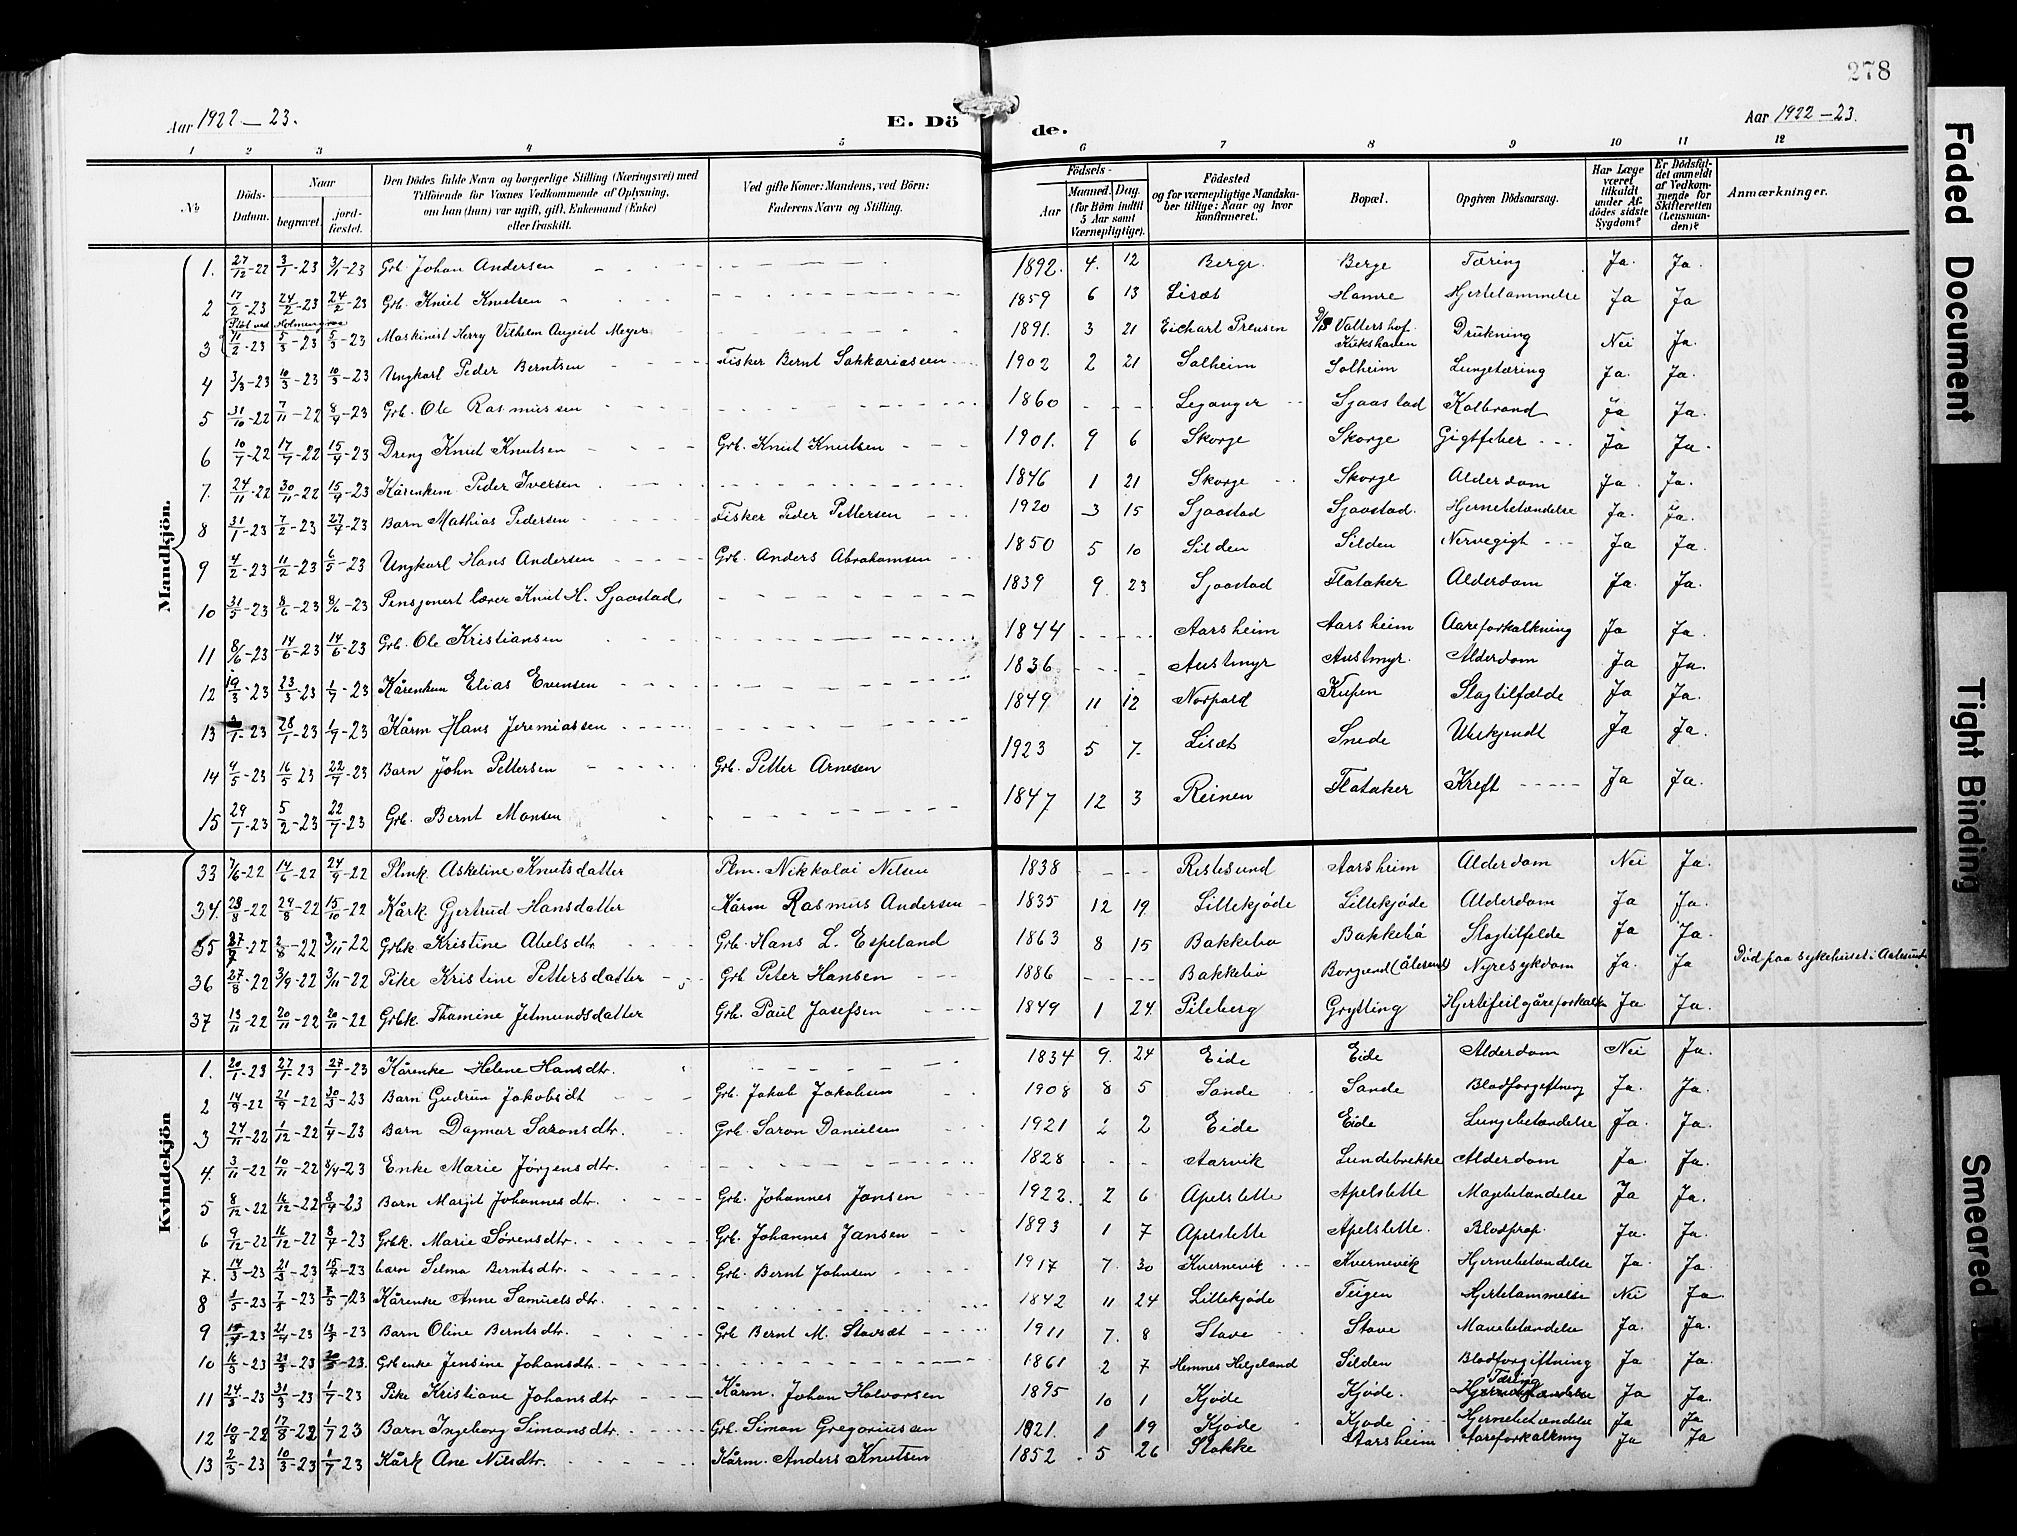 278
Aar 1922-23.
E. Döde.
Aar 1922-23.
1 2 3 4 5 6 7 8 9 10 11 12
No
Döds-Datum.
Naar
begravet.
jord-fæstet.
Den Dödes fulde Navn og borgerlige Stilling (Næringsvei) med
Tilföiende for Voxnes Vedkommende af Oplysning,
om han (hun) var ugift, gift, Enkemand (Enke)
eller fraskilt.
Ved gifte Koner: Mandens, ved Börn:
Faderens Navn og Stilling.
Födsels-
Aar
Maaned. Dag.
(for Börn indtil
5 Aar samt
Værnepligtige).
Födested
og for værnepligtige Mandska-
ber tillige: Naar og hvor
konfirmeret.
Bopæl.
Opgiven Dödsaarsag.
Har Læge
været
tilkaldt
under Af-
dödes sidste
Sygdom?
Er Dödsfal-
det anmeldt
af Vedkom-
mende for
Skifteretten
(Lensman-
den)?
Anmærkninger.
Mandkjön.
1. 27/12-22 3/1-23 3/1-23 Grb. Johan Andersen 1892. 4. 12 Berge Berge Tæring Ja. Ja.
2 17/2-23 24/2-23 24/2-23 Grb. Knut Knutsen 1859 6 13 Lisæt Hamre Hjertelammelse Ja Ja
3 11/2-23 5/3-23 5/3-23 Maskinist Herry Vilhelm August Meyer 1891. 3 21 Eichart Preusen Valtershof Kukshaven Drukning Nei Ja.
4 3/3-23 10/3-23 10/3-23 Ungkarl Peder Berntsen Fisker Bernt Sakkariassen 1902 2 21 Solheim Solheim Lungetæring Ja. Ja.
5 31/10-22 7/11-22 8/4-23 Grb. Ole Rasmussen 1860 Leganger Sjaastad Kolbrand Ja Ja.
6 10/7-22 17/7-22 15/4-23 Dreng Knut Knutsen Grb. Knut Knutsen 1901. 9 6 Skorge Skorge Gigtfeber Ja Ja.
7. 24/11-22 30/11-22 15/4-23 Kårenkem Peder Iversen 1846 1 21 Skorge Skorge Alderdom Ja. Ja.
8 31/1-23 7/2-23 27/4-23 Barn Mathias Pedersen Fisker Peder Pettersen 1920 3 15 Sjaastad Sjaastad. Hjernebetændelse Ja. Ja.
9 4/2-23 11/2-23 6/5-23 Ungkarl Hans Andersen Grb. Anders Abrahamsen 1850 5 10 Silden Silden Nervegigt Ja Ja.
10 31/5-23 8/6-23 8/6-23 Pensjonert lærer Knut H. Sjaastad 1839 9 23 Sjaastad Flataker Alderdom Ja. Ja.
11 8/6-23 14/6-23 14/6-23 Grb. Ole Kristiansen 1844 Aarsheim Aarsheim Aareforkalkning Ja Ja.
12 19/3-23 23/3-23 1/7-23 Kårenkem Elias Evensen 1836 Austmyr Austmyr. Alderdom Ja Ja.
13 28/1-23 1/9-23 Kårm Hans Jeremiassen 1849 11 12 Norpold Kupen Slagtilfælde Ja Ja.
14 4/5-23 16/5 23 22/7-23 Barn John Pettersen Grb. Petter Arnesen 1923 5 7. Lisæt Snede Ubekjendt Ja Ja.
15 29/1-23 5/2-23 22/7-23 Grb. Bernt Monsen 1847 12 3 Reinen Flataker Kreft Ja Ja.
33 7/6-22 14/6-22 24/9-22 Plmk. Askeline Knutsdatter Plm. Nikkolai Nilsen 1838 Ristesund Aarsheim Alderdom Nei Ja.
34. 23/8-22 29/8-22 15/10-22 Kårk. Gjertrud Hansdatter Kårm Rasmus Andersen 1835 12 19 Lillekjøde Lillekjøde Alderdom Ja Ja.
35 27/7-22 2/8-22 3/11-22 Grbk Kristine Abelsdtr. Grb. Hans L. Espeland 1863 8 15 Bakkebø Bakkebø Slagtilfelde Ja Ja.
36 27/8-22 3/9-22 3/11-22 Pike Kristine Pettersdatter Grb Peter Hansen 1886 Bakkebø Borgund (Ålesund) Nyresykdom Ja. Ja Død paa sykehuset i Aalesund
37 13/11-22 20/11-22 20/11-22 Grbk. Thomine Jetmundsdatter Grb. Paul Josefsen 1849 1 24. Pileberg Grytting Hjertefeil, åreforkalkn Ja Ja.
Kvindekjön
1. 20/1-23 27/1-23 27/1-23 Kårenke Helene Hansdtr. 1834 9. 24 Eide Eide Alderdom Nei Ja.
2 14/9-22 21/9-22 30/3-23 Barn Gudrun Jakobsdt Grb. Jakob Jakobsen 1908 8 5 Sande Sande Blodforgiftning Ja. Ja.
3 24/11-22 1/12-22 1/4-23 Barn Dagmar Saronsdtr. Grb. Saron Danielsen 1921 2 2 Eide Eide Lungebetændelse Ja. Ja.
4. 3/11-22 10/11-22 8/4-23 Enke Marie Jørgensdtr. 1828 Aarvik Lundebrekke Alderdom Ja. Ja.
5 8/12-22 16/12-22 8/4-23 Barn Margit Johannesdtr. Grb. Johannes Jansen 1922. 2 6 Apelslette Apelslette Magebetændelse Ja Ja.
6 9/12-22 16/12-22 8/7-23 Grbk. Marie Sørensdtr. Grb. Johannes Jansen 1893 1 7 Apelslette Apelslette. Blodprop. Ja. Ja.
7. 14/3-23 21/3-23 15/4-23 barn Selma Berntsdtr. Grb. Bernt Johnsen 1917 7. 30 Kvernevik Kvernevik Hjernebetændelse Ja. Ja.
8 1/5-23 7/5-23 7/5-23 Kårenke Anne Samuelsdtr. 1842 11 24 Lillekjøde Teigen Hjertelammelse Nei Ja.
9 21/4-23 13/5-23 Barn Oline Berntsdtr. Grb Bernt M. Stavsæt 1911 7. 8 Stave Stave Mavebetændelse Ja. Ja.
10 16/3-23 Grbenke Jensine Johansdtr. 1861 2 7 Hemnes Helgeland Silden Blodforgiftning Ja Ja.
11 24/3-23 31/3-23 1/7-23 Pike Kristiane Johansdtr Kårm. Johan Halvorsen 1895 10 1 Kjøde Kjøde. Tæring Ja Ja.
12 10/8-22 17/8-22 1/7 23 Barn Ingeborg Simonsdtr. Grb. Simon Gregoriussen 1921. 1 19 Kjøde Kjøde Hjernebetændelse Ja Ja
13 2/3-23 10/3-23 1/7-23 Kårk Ane Nilsdtr. Kårm. Anders Knutsen 1852 5 26 Stokke Aarsheim Aareforkalkning Ja Ja
Faded Document
Tight Binding
Smeared